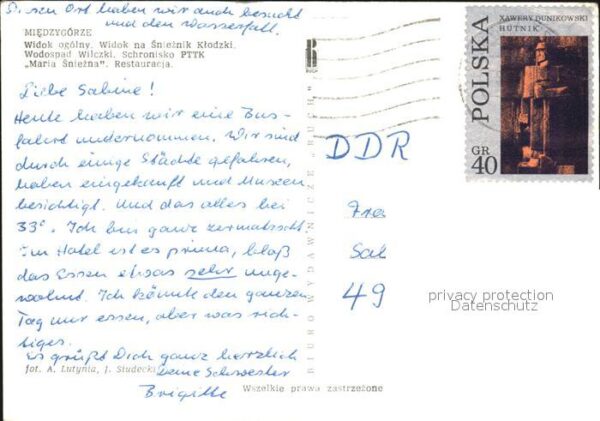 Diesen Ort haben wir auch besucht
und den Wasserfall.
MIĘDZYGÓRZE
Widok ogólny. Widok na Śnieżnik Kłodzki.
Wodospad Wilczki, Schronisko PTTK
„Maria Śnieżna". Restauracja.
Liebe Sabine!
Heute haben wir eine Bus-
fahrt unternommen. Wir sind
durch einige Städte gefahren,
haben eingekauft und Museen
besichtigt. Und das alles bei
33°. Ich bin ganz zermatscht.
Im Hotel ist es prima, bloß
das Essen etwas sehr unge-
wohnt. Ich könnte den ganzen
Tag nur essen, aber was rich-
tiges.
Es grüßt Dich ganz herzlich
deine Schwester
Brigitte
fot. A. Lutynia, J. Siudecki
Wszelkie prawa zastrzeżone
BIURO WYDAWNICZE „RUCH"
RUCH
XAWERY DUNIKOWSKI
HUTNIK
POLSKA
GR
40
DDR
Fra
Sal
49
privacy protection
Datenschutz